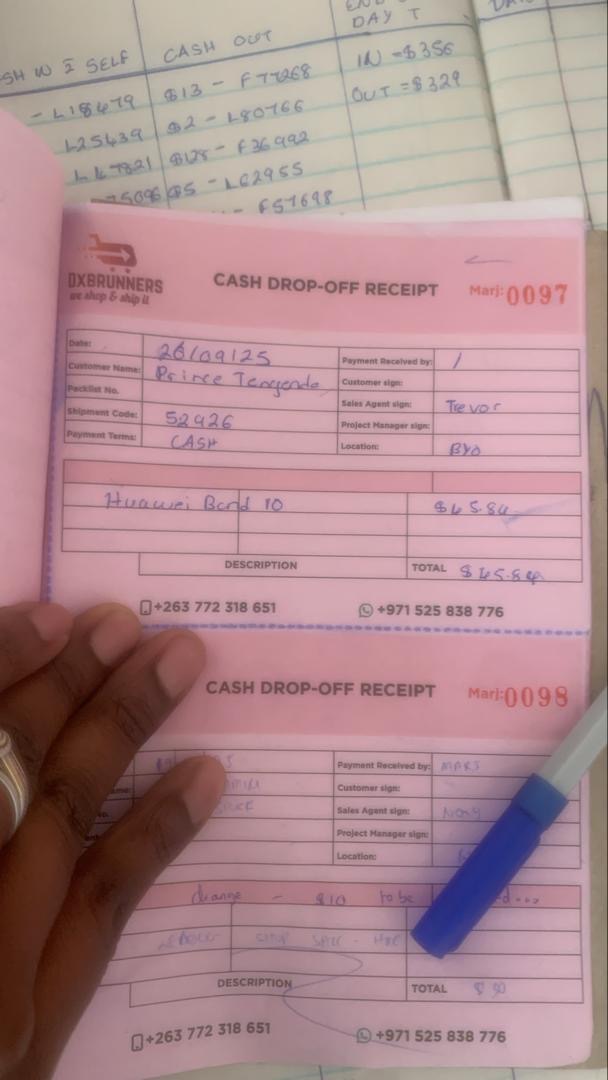 END
DAY T
SH IN I SELF CASH OUT
IN =$356
- L18479 $13 - F77268
OUT =$329
L25439 $2 - L80766
L47821 $128 - F36992
75096 $5 - L62955
- F57698
DXBRUNNERS
we shop & ship it
CASH DROP-OFF RECEIPT Marj: 0097
Date: 26/09/25 Payment Received by: /
Customer Name: Prince Customer sign:
Packlist No. Sales Agent sign: Trevor
Shipment Code: 52926 Project Manager sign:
Payment Terms: CASH Location: BYO
Huawei Band 10 $45.84
DESCRIPTION TOTAL $45.84
+263 772 318 651 +971 525 838 776
CASH DROP-OFF RECEIPT Marj: 0098
Payment Received by: MARJ
ame: Customer sign:
No. Sales Agent sign:
Project Manager sign:
Location:
change - $10 to be
DESCRIPTION TOTAL $
+263 772 318 651 +971 525 838 776